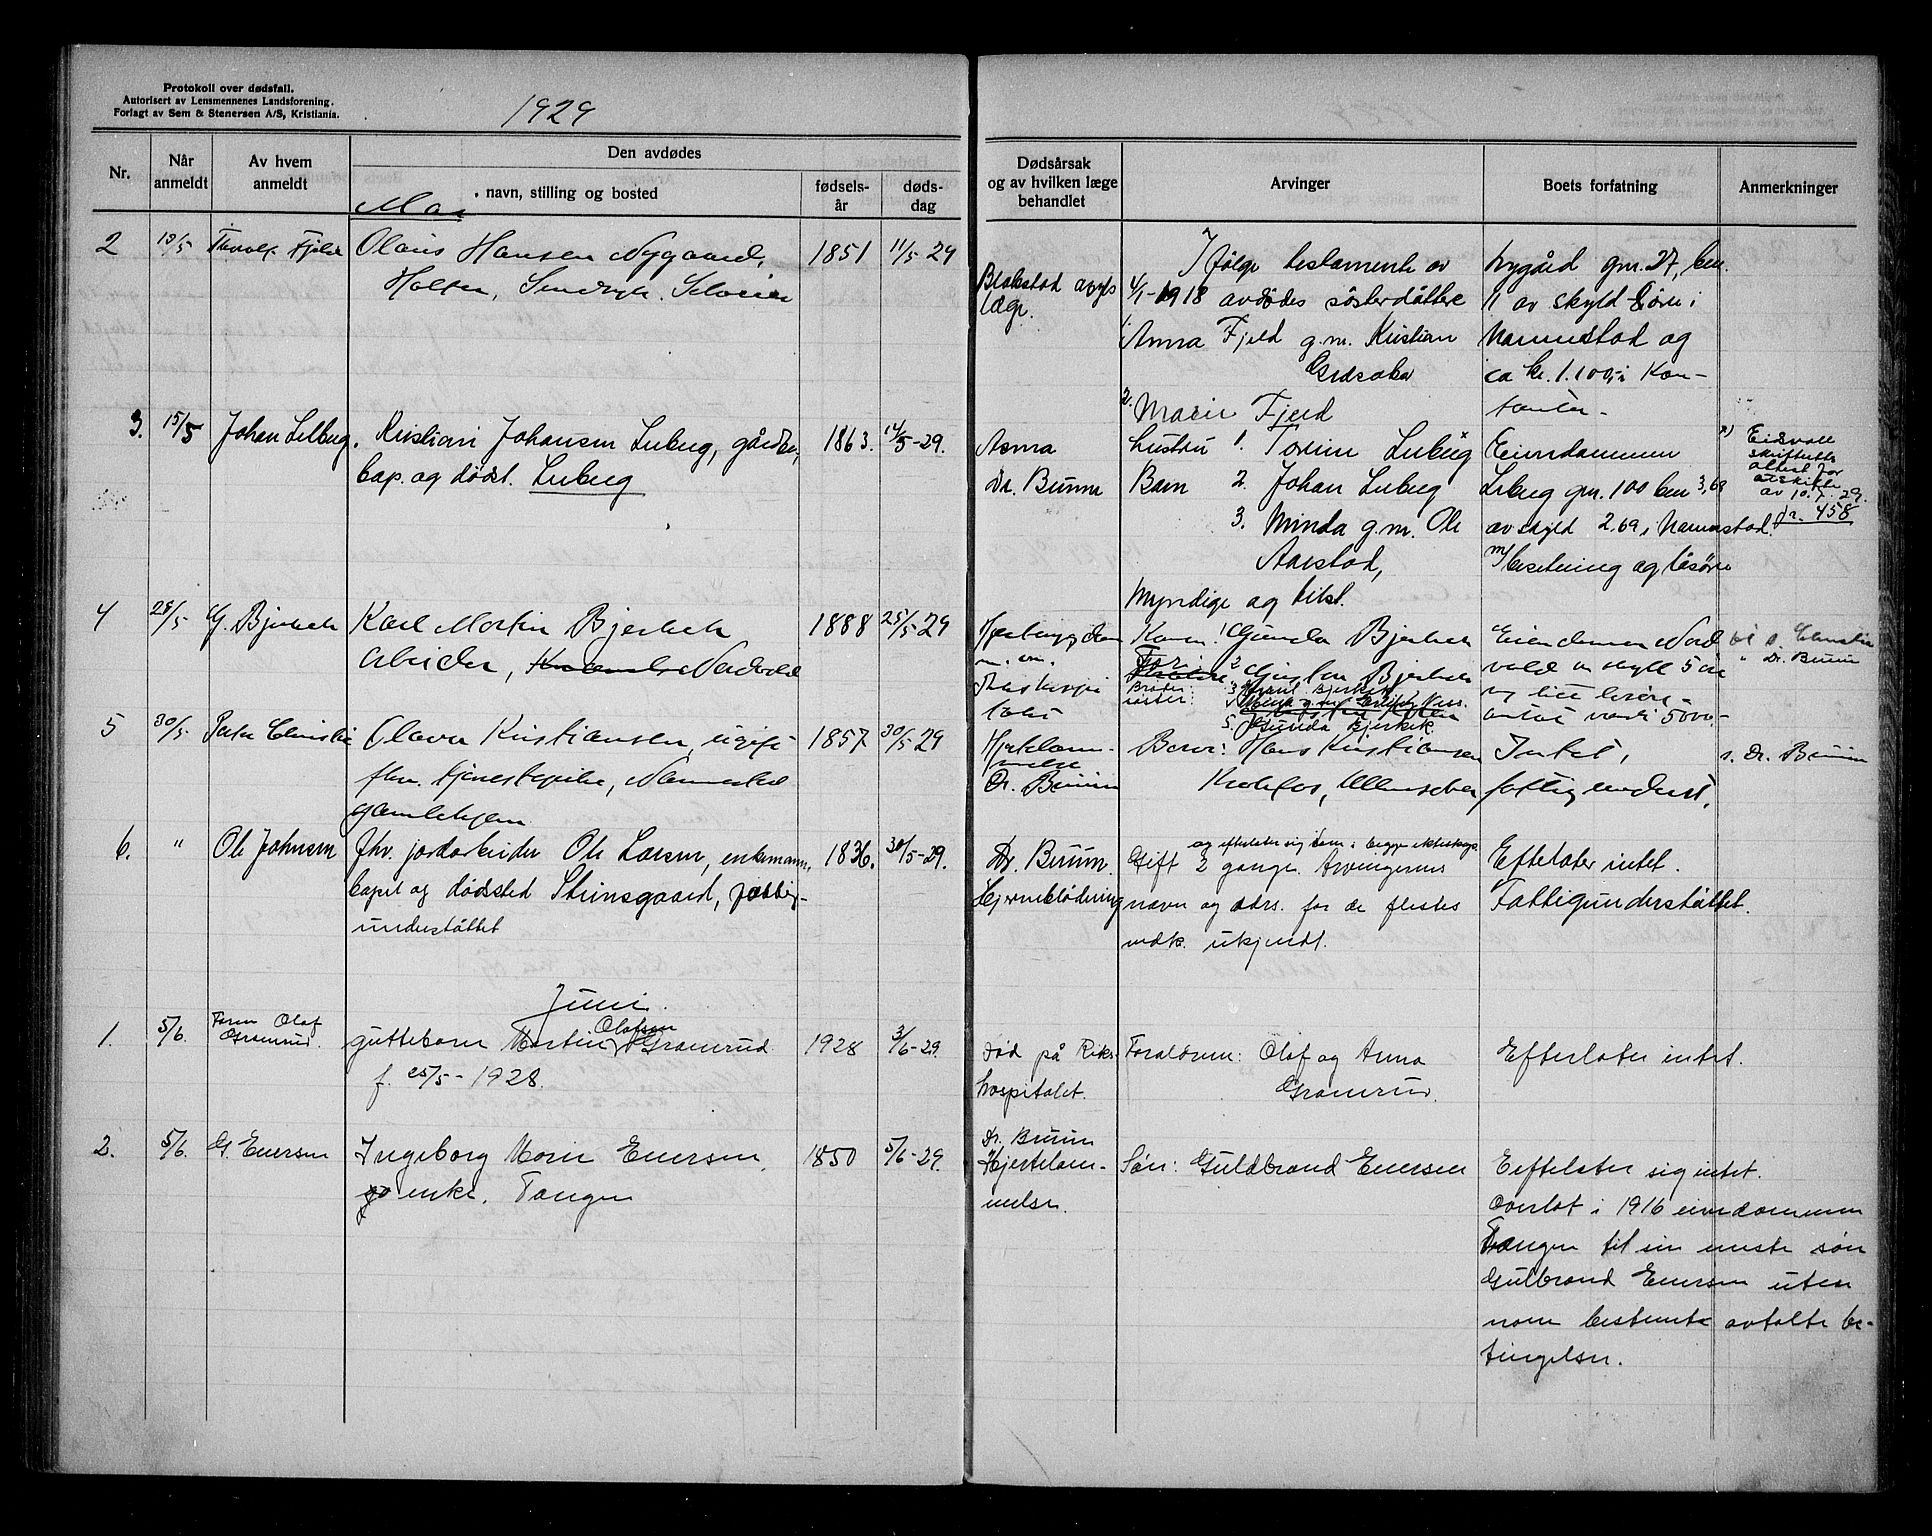 Protokoll over dødsfall.
Autorisert av Lensmennenes Landsforening.
Forlagt av Sem & Stenersen A/S, Kristiania.
1929
Nr.
Når anmeldt
Av hvem anmeldt
Den avdødes
navn, stilling og bosted
fødselsår
dødsdag
Dødsårsak
og av hvilken læge
behandlet
Arvinger
Boets forfatning
Anmerkninger
Mai
2
13/5
Fjeld
Olaus Hansen Nygaard,
Holter,
1851
11/5-29
Blakstad asyls
læge.
Ifølge testamente av
4/1-1918 avdødes søsterdøttre
1. Anna Fjeld g.m. Kristian
2. Marie Fjeld
Nygård gnr. 27, bnr.
11 av skyld 5 øre i
Nannestad og
ca kr. 1.100,- i Kon-
tanter.
3.
15/5
Johan Lilberg.
Kristian Johansen Luberg, gårdbr,
bop. og dødst. Luberg
1863.
14/5-29.
Asma
Dr. Buum
hustru 1. Luberg
Barn 2. Johan Luberg
3. Minda g.m. Ole
Aarstad,
Myndige og tilst.
Eiendommen
Luberg gnr. 100 bnr 3,
av skyld 2.69 i Nannestad.
m/besetning og løsøre
Eidsvoll
skifteretts
attest for
av 10.7.29.
Jr. 458
4
28/5
G. Bjerkek
Karl Martin Bjerkek
Arbeider,
1888
25/5-29
Gunda Bjerkek
Bjerkek
Brødre
søster:
5. Gunda Bjerkek.
Eiendommen Nord
vold av skyld 5 øre
og litt løsøre
antat verdi 5000-
" Dr. Buum
5
30/5
Peter Christie
Olava Kristiansen, ugift
fhv. tjenestepike, Nannestad
gamlehjem
1857
30/5-29
Hjertelam-
melse
Dr. Buum
Hans Kristiansen
Kroksfos, Ullensaker
Intet,
fattigunderst.
s. Dr. Buum
6.
"
Ole Johnsen
fhv. jordarbeider Ole Larsen, enkemann.
bopel og dødsted Steinsgaard, fattig-
understøttet
1836.
30/5-29.
Dr. Buum.
Hjerneblødning
og efterlater sig barn i begge ekteskap.
Gift 2 gange. Arvingernes
navn og adrs. for de flestes
vedk. ukjendt.
Efterlater intet.
Fattigunderstøttet.
Juni
1.
5/6.
Faren Olaf
Gramrud.
guttebarn Martin Olafsen Gramrud
f. 25/5-1928.
1928
3/6-29.
Død på Riks-
hospitalet.
Foreldrene: Olaf og Anna
Gramrud.
Efterlater intet.
2.
5/6.
G. Enersen
Ingeborg Marie Enersen,
enke. Tangen
1850
5/6-29.
Dr. Buum
Hjertelam-
melse.
Søn: Guldbrand Enersen
Efterlater sig intet.
Overlot i 1916 eiendommen
Tangen til sin eneste søn
Gulbrand Enersen uten
noen bestemte avtalte be-
tingelser.